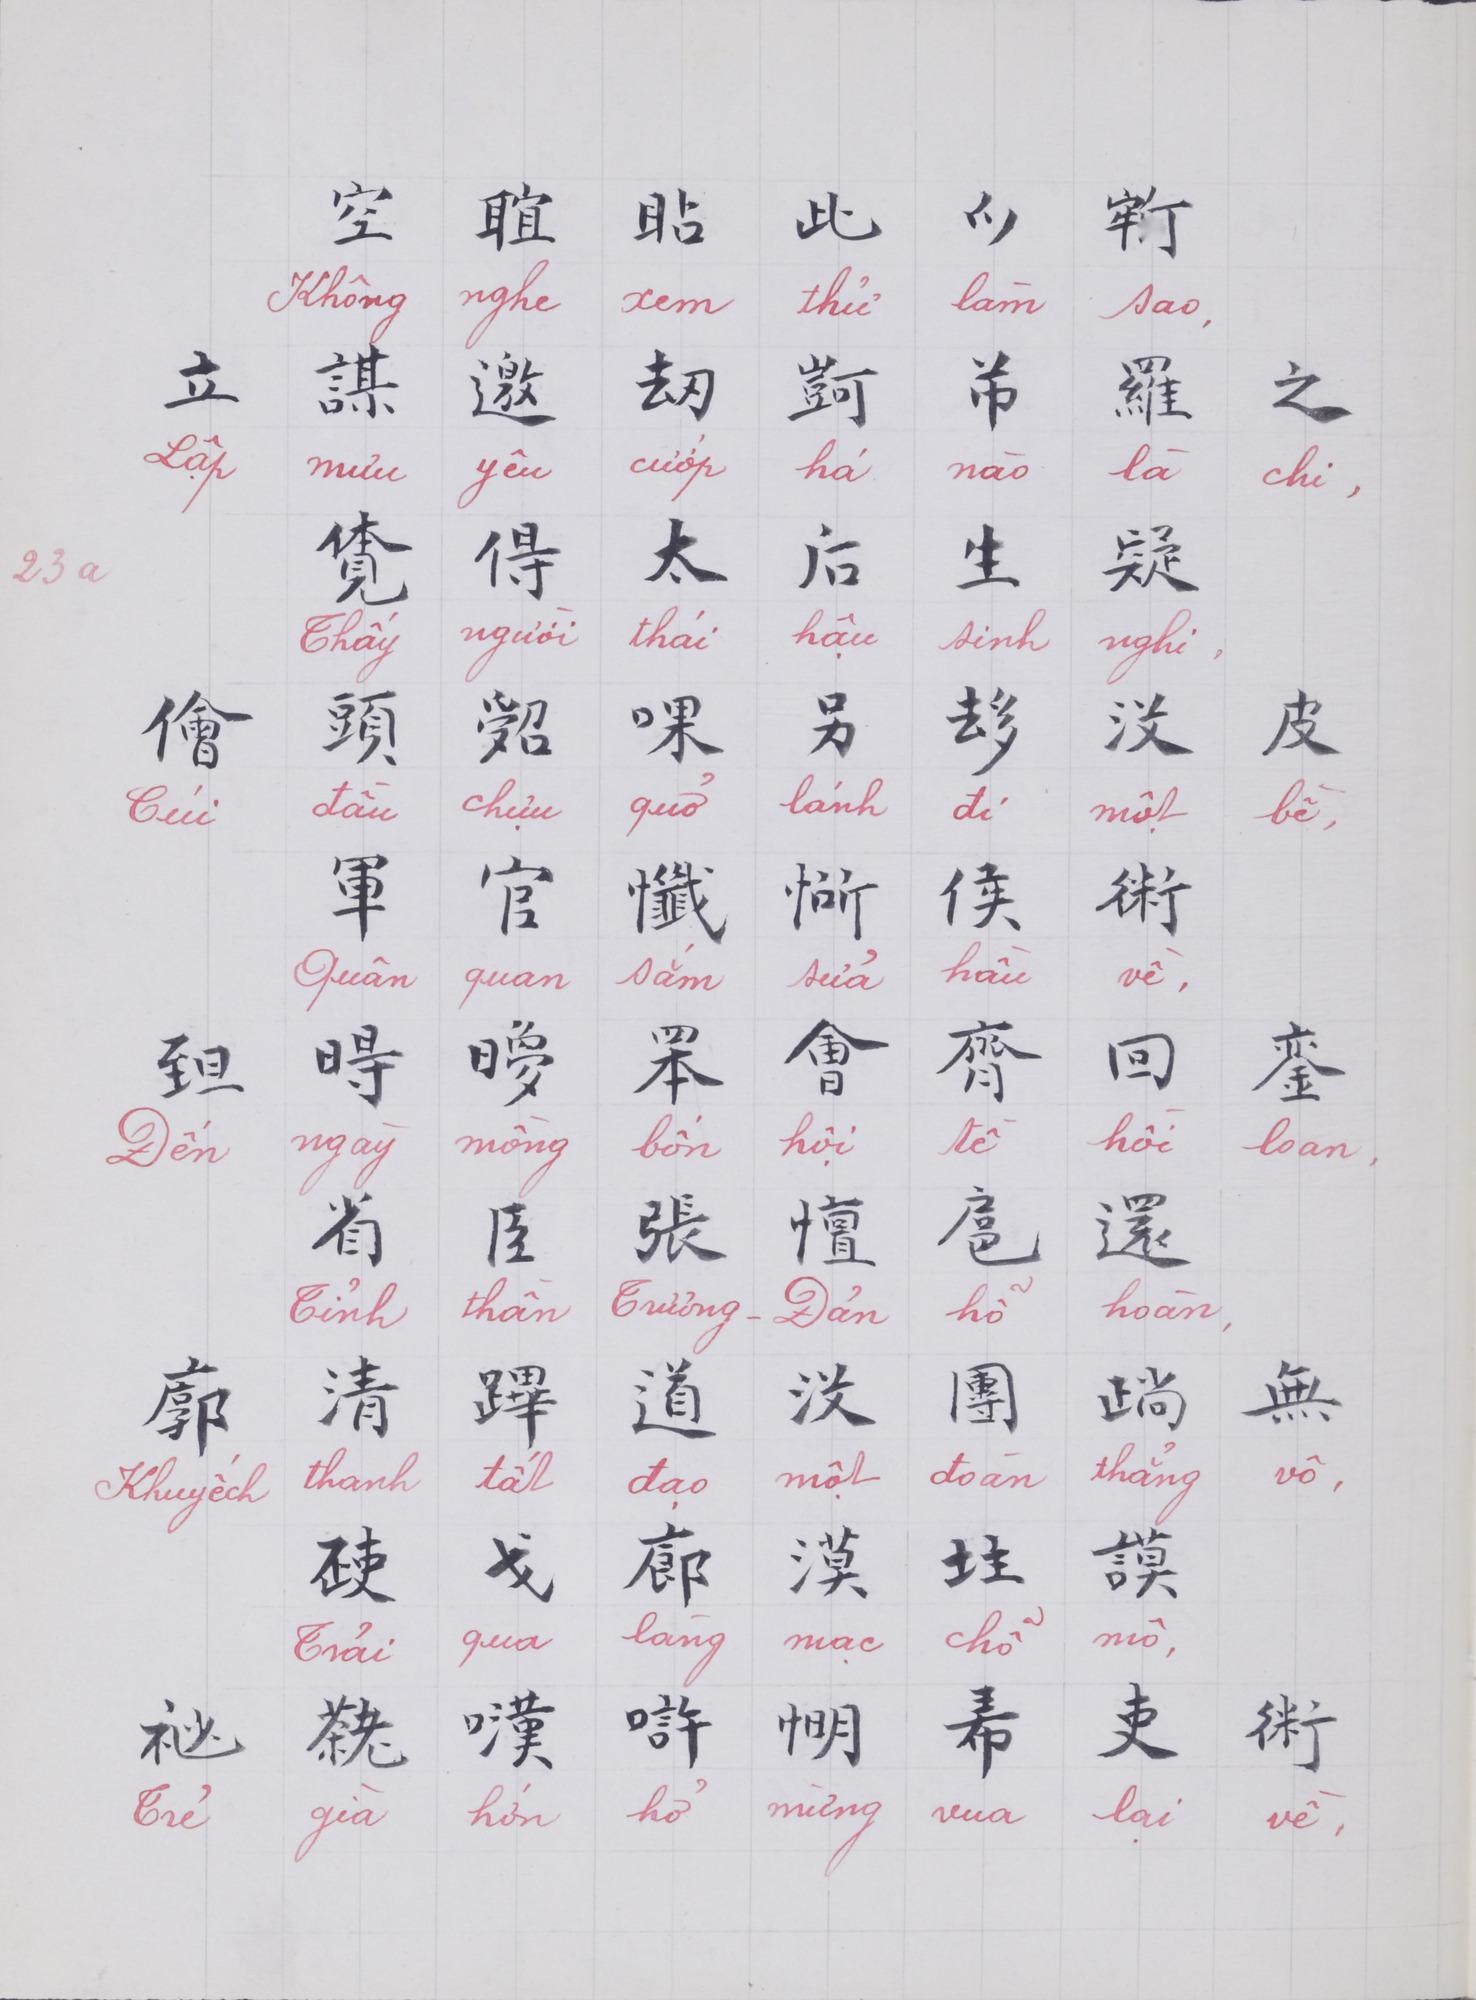 空 䀡 貼 此 𪜀
Không nghe xem thử làm sao,
立 謀 邀 刼 之 羅
Lập mưu yêu cướp há nào là chi,
23a
𧡊 𠊛 太 后 生 疑
Thấy người thái hậu sinh nghi,
儈 頭 另 𠫾 没 皮
Cúi đầu chịu quở lánh đi một bề,
軍 官 懺 侯 術
Quân quan sắm sửa hầu về,
𦤾 𣈜 罘 會 齊 回 鑾
Đến ngày mồng bốn hội tề hồi loan,
省 臣 張 扈 還
Tỉnh thần Trương-Đản hỗ hoàn,
廓 清 蹕 道 没 團 無
Khuyếch thanh tất đạo một đoàn thẳng vô,
戈 廊 漠 謨
Trải qua làng mạc chỗ mô,
嘆 𢂜 吏 術
Trẻ già hớn hở mừng vua lại về,